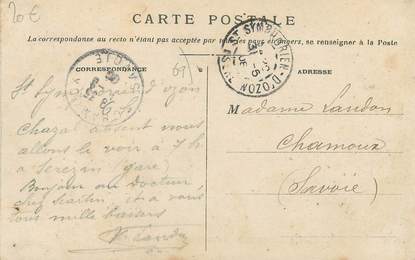 20€
CARTE POSTALE
La correspondance au recto n'étant pas acceptée par tous les pays étrangers, se renseigner à la Poste
CORRESPONDANCE
69
ADRESSE
ST SYMPHORIEN-D'OZON
St Symphorien d'ozon
Chazal absent nous
allons le voir à 7h
à Serezin (gare)
Bonjour au docteur
chez Martin, et à vous
tous mille baisers
Landon
Madame Landon
Chamoux
(Savoie)